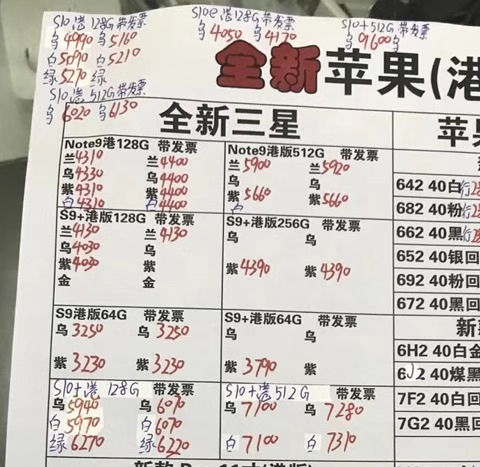 S10 港 128G 带发票
乌4990 乌5160
白5090 白5210
绿5270 绿
S10 港 512G 带发票
乌6020 乌6130
S10e 港 128G 带发票
乌4050 乌4170
S10+512G 带发票
乌9600乌
全新苹果(港
全新三星
苹果
Note9港128G 带发票
兰4310 兰4400
乌4330 乌4400
紫4310 紫4400
白4310 白4400
Note9港版512G 带发票
兰5900 兰5920
乌 乌
紫5660 紫5660
白
S9+港版128G 带发票
兰4130 兰4130
乌4030 乌
紫4030 紫
金 金
S9+港版256G 带发票
乌 乌
紫4390 紫4390
S9港版64G 带发票
乌3250 乌3250
紫3230 紫3230
S9+港版64G 带发票
乌 乌
紫3790 紫
S10+港 128G 带发票
乌5940 乌6070
白5970 白6070
绿6270 绿6220
S10+港 512G 带发票
乌7100 乌7280
白7100 白7310
642 40白
682 40粉
662 40黑
652 40银回
692 40粉回
672 40黑回
新
6H2 40白金
6J2 40煤黑
7F2 40白回
7G2 40黑回